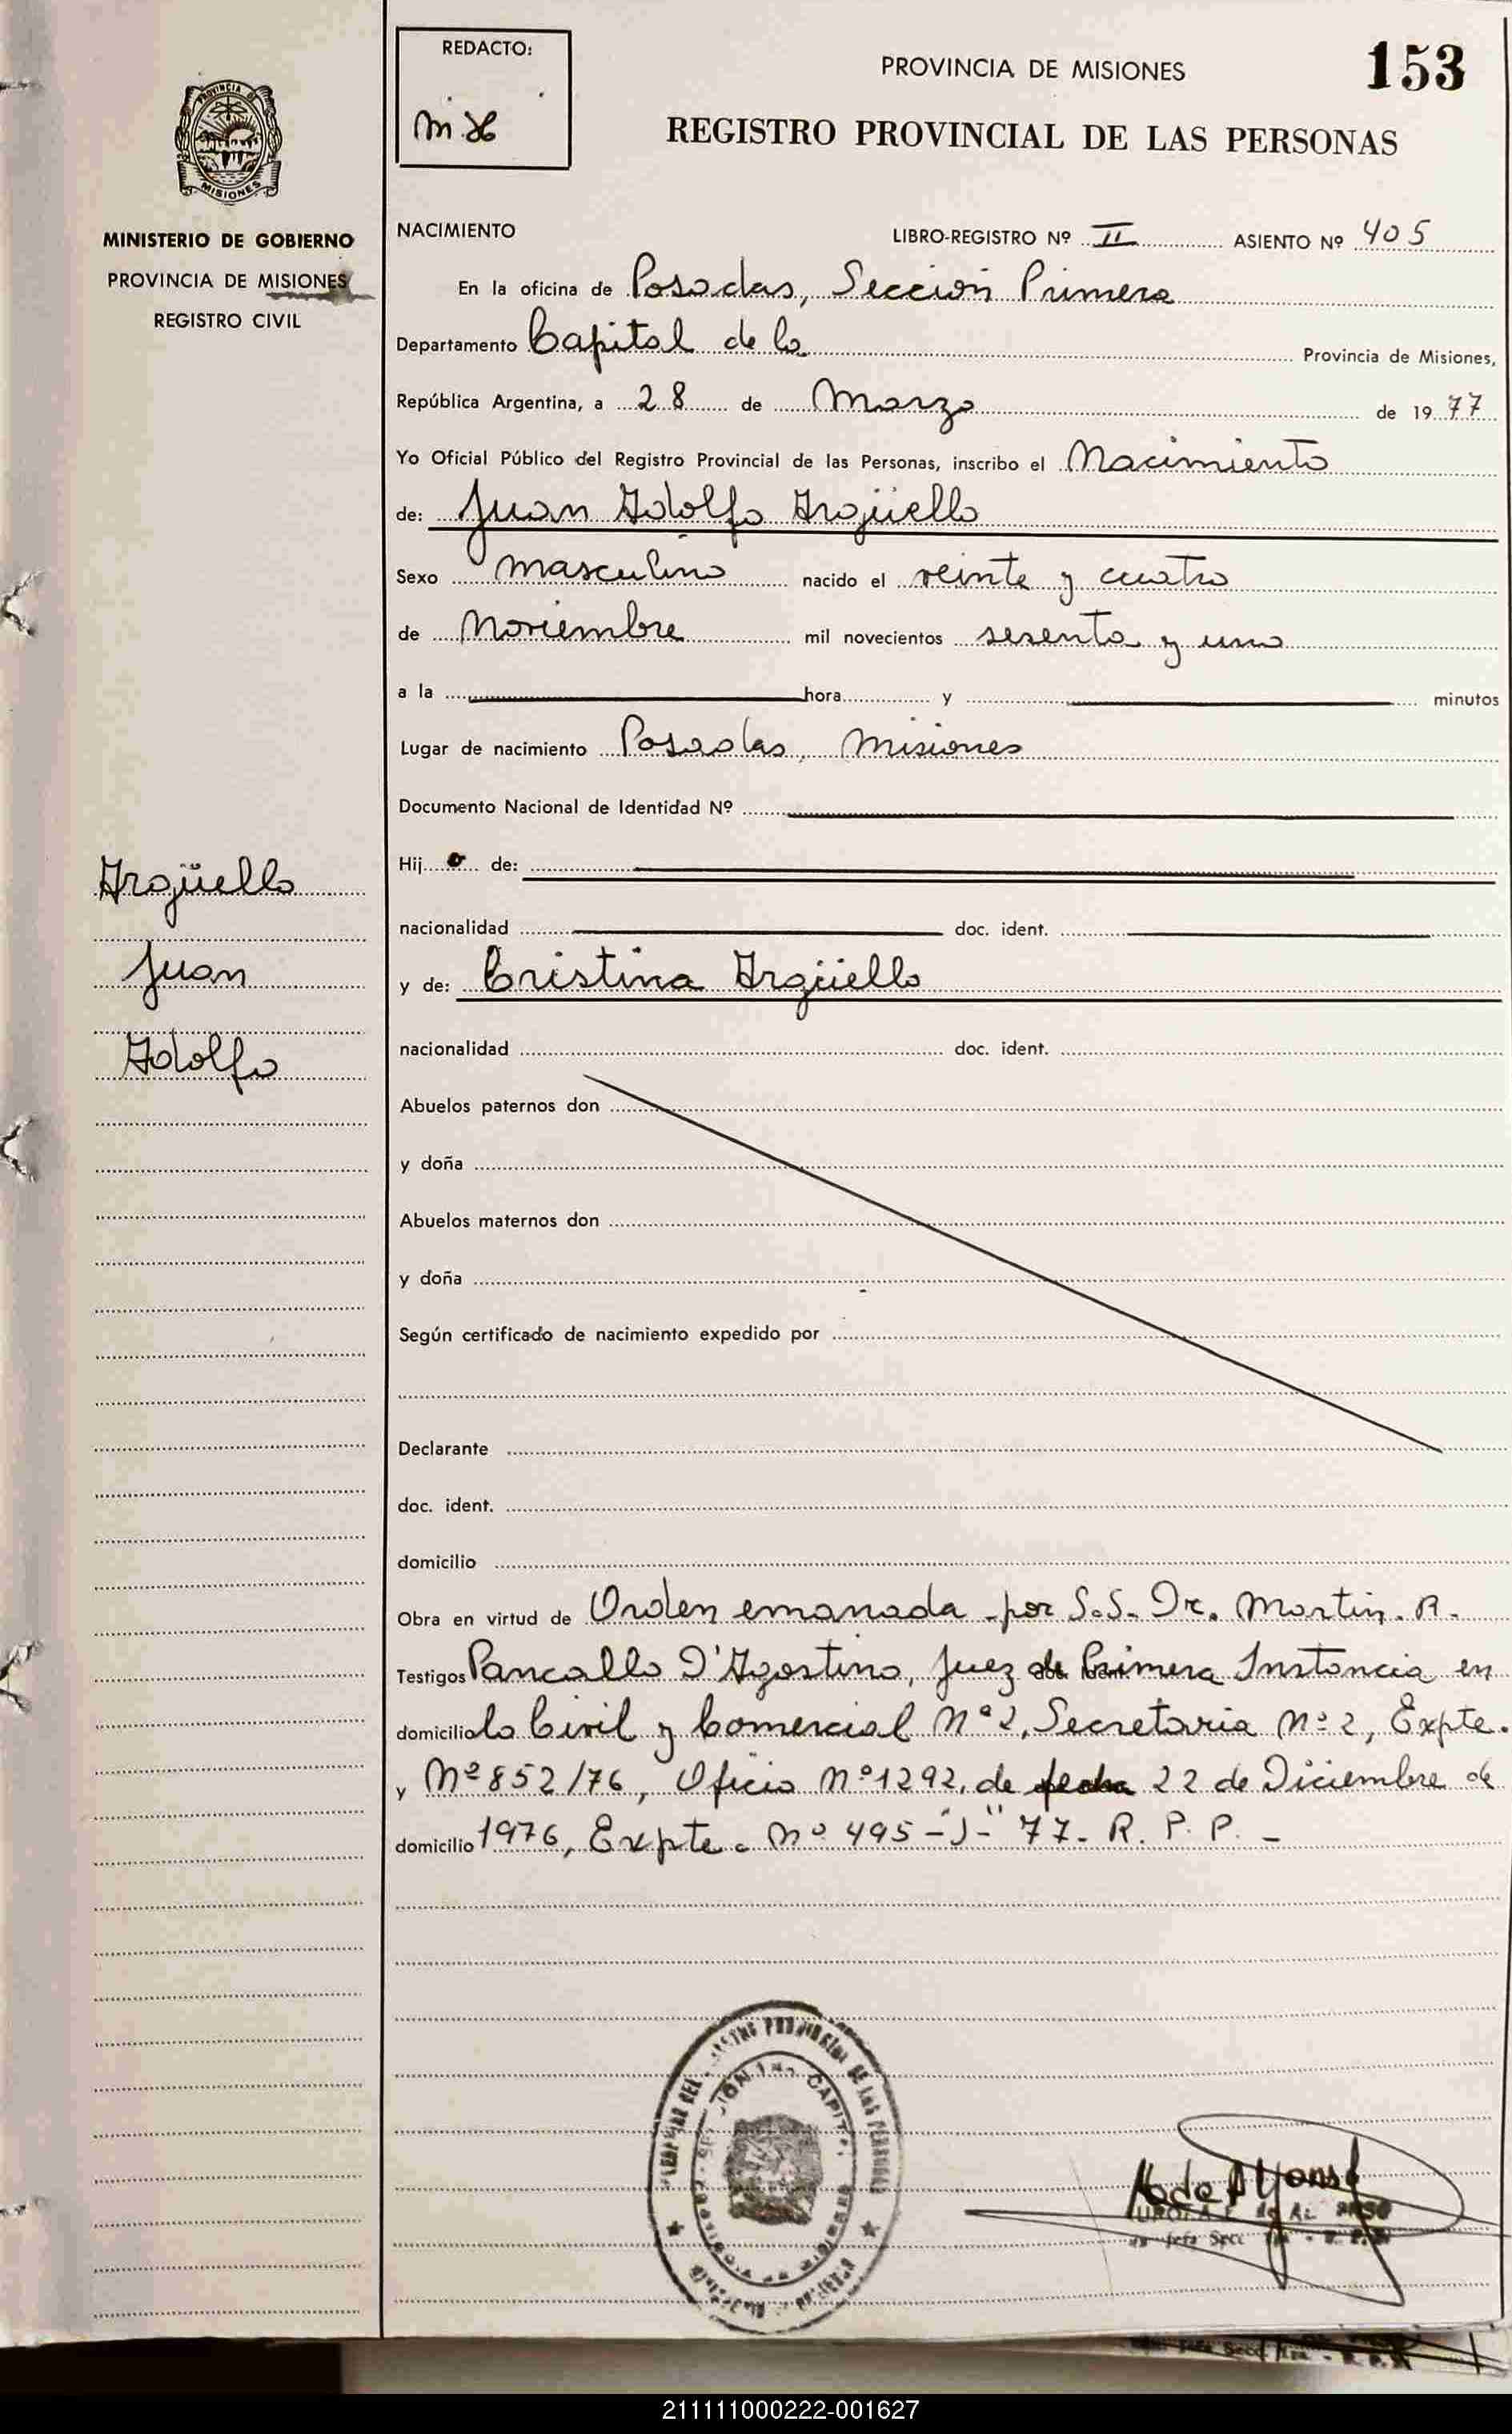 REDACTO:
PROVINCIA DE MISIONES
153
REGISTRO PROVINCIAL DE LAS PERSONAS
PROVINCIA DE
MISIONES
MINISTERIO DE GOBIERNO
PROVINCIA DE MISIONES
REGISTRO CIVIL
NACIMIENTO
LIBRO-REGISTRO Nº II ASIENTO Nº 405
En la oficina de Posadas, Sección Primera
Departamento Capital de la Provincia de Misiones,
República Argentina, a 28 de Marzo de 1977
Yo Oficial Público del Registro Provincial de las Personas, inscribo el Nacimiento
de: Juan Adolfo Argüello
Sexo masculino nacido el veinte y cuatro
de Noviembre mil novecientos sesenta y uno
a la hora y minutos
Lugar de nacimiento Posadas, Misiones
Documento Nacional de Identidad Nº
Hijo de:
nacionalidad doc. ident.
y de: Cristina Argüello
nacionalidad doc. ident.
Abuelos paternos don
y doña
Abuelos maternos don
y doña
Según certificado de nacimiento expedido por
Declarante
doc. ident.
domicilio
Obra en virtud de Orden emanada por S.S. Dr. Martin. R.
Testigos Pancallo D'Agostino, Juez de Primera Instancia en
domicilio lo Civil y Comercial Nº 2, Secretaria Nº 2, Expte.
y Nº 852/76, Oficio Nº 1292, de fecha 22 de Diciembre de
domicilio 1976, Expte. Nº 495-"J"-77- R. P. P. -
Argüello
Juan
Adolfo
211111000222-001627